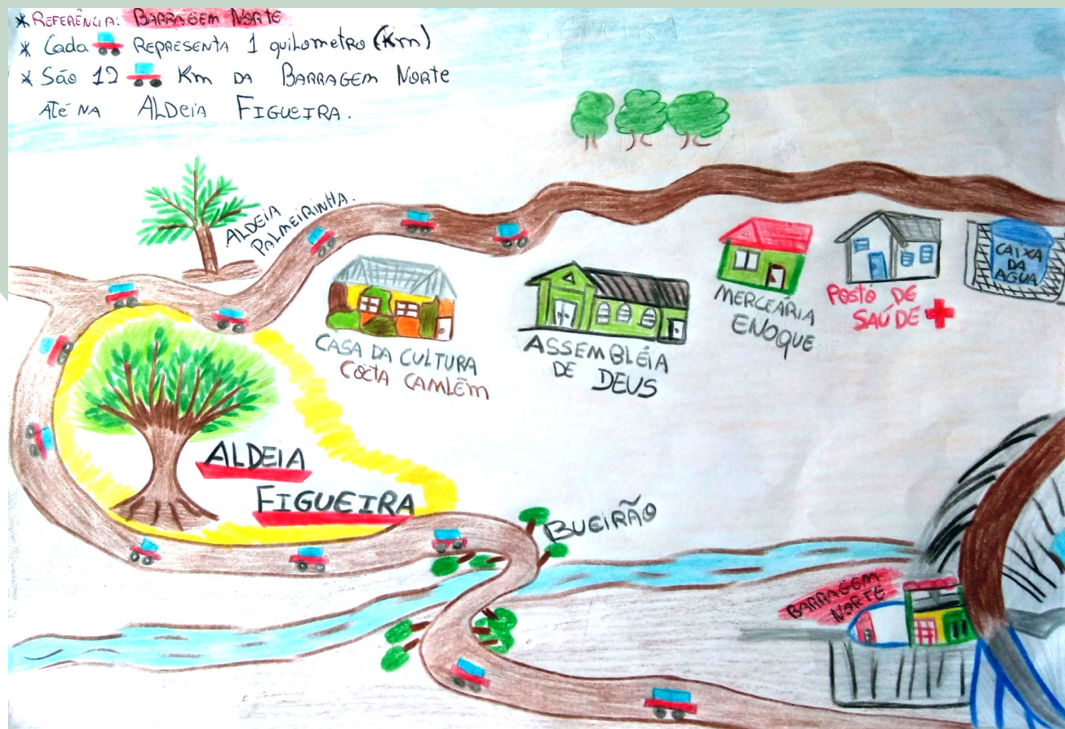 * REFERÊNCIA: BARRAGEM NORTE
* Cada REPRESENTA 1 quilometro (Km)
* São 12 Km DA BARRAGEM NORTE
ATÉ NA ALDEIA FIGUEIRA.
ALDEIA
PALMEIRINHA.
CASA DA CULTURA
COCTA CAMLẼM
ASSEMBLÉIA
DE DEUS
MERCEARIA
ENOQUE
POSTO DE
SAÚDE
CAIXA
DA
AGUA
ALDEIA
FIGUEIRA
BUEIRÃO
BARRAGEM
NORTE